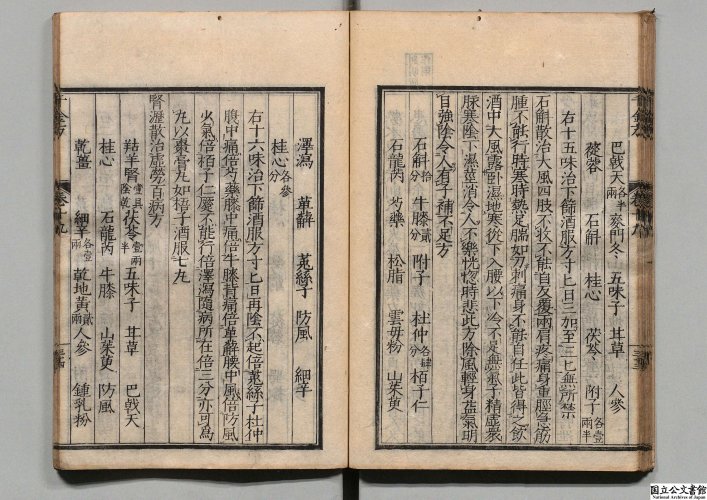 巴戟天各半兩 麥門冬 五味子 甘草 人參
蓯蓉 石斛 桂心 茯苓 附子各壹兩半
右十五味治下篩酒服方寸匕日三加至三匕無所禁
石斛散治大風四肢不收不能自反覆兩肩疼痛身重脛急筋
腫不能行時寒時熱足腨如刀刺痛身不能自任此皆得之飲
酒中大風露臥濕地寒從下入腰以下冷不足無氣子精虛衆
脉寒陰下濕莖消令人不樂恍惚時悲此方除風輕身益氣明
目強陰令人有子補不足方
石斛拾分 牛膝貳分 附子 杜仲各肆分 栢子仁
石龍芮 芍藥 松脂 雲母粉 山茱萸
澤瀉 萆薢 菟絲子 防風 細辛
桂心各參分
右十六味治下篩酒服方寸匕日再陰不起倍菟絲子杜仲
腹中痛倍芍藥膝中痛倍牛膝背痛倍萆薢腰中風倍防風
少氣倍栢子仁蹷不能行倍澤瀉隨病所在倍三分亦可爲
丸以棗膏丸如梧子酒服七丸
腎瀝散治虛勞百病方
羖羊腎壹具陰乾 茯苓壹兩半 五味子 甘草 巴戟天
桂心 石龍芮 牛膝 山茱萸 防風
乾薑 細辛各壹兩 乾地黄貳兩 人參 鍾乳粉
千金方 卷十九
国立公文書館
National Archives of Japan